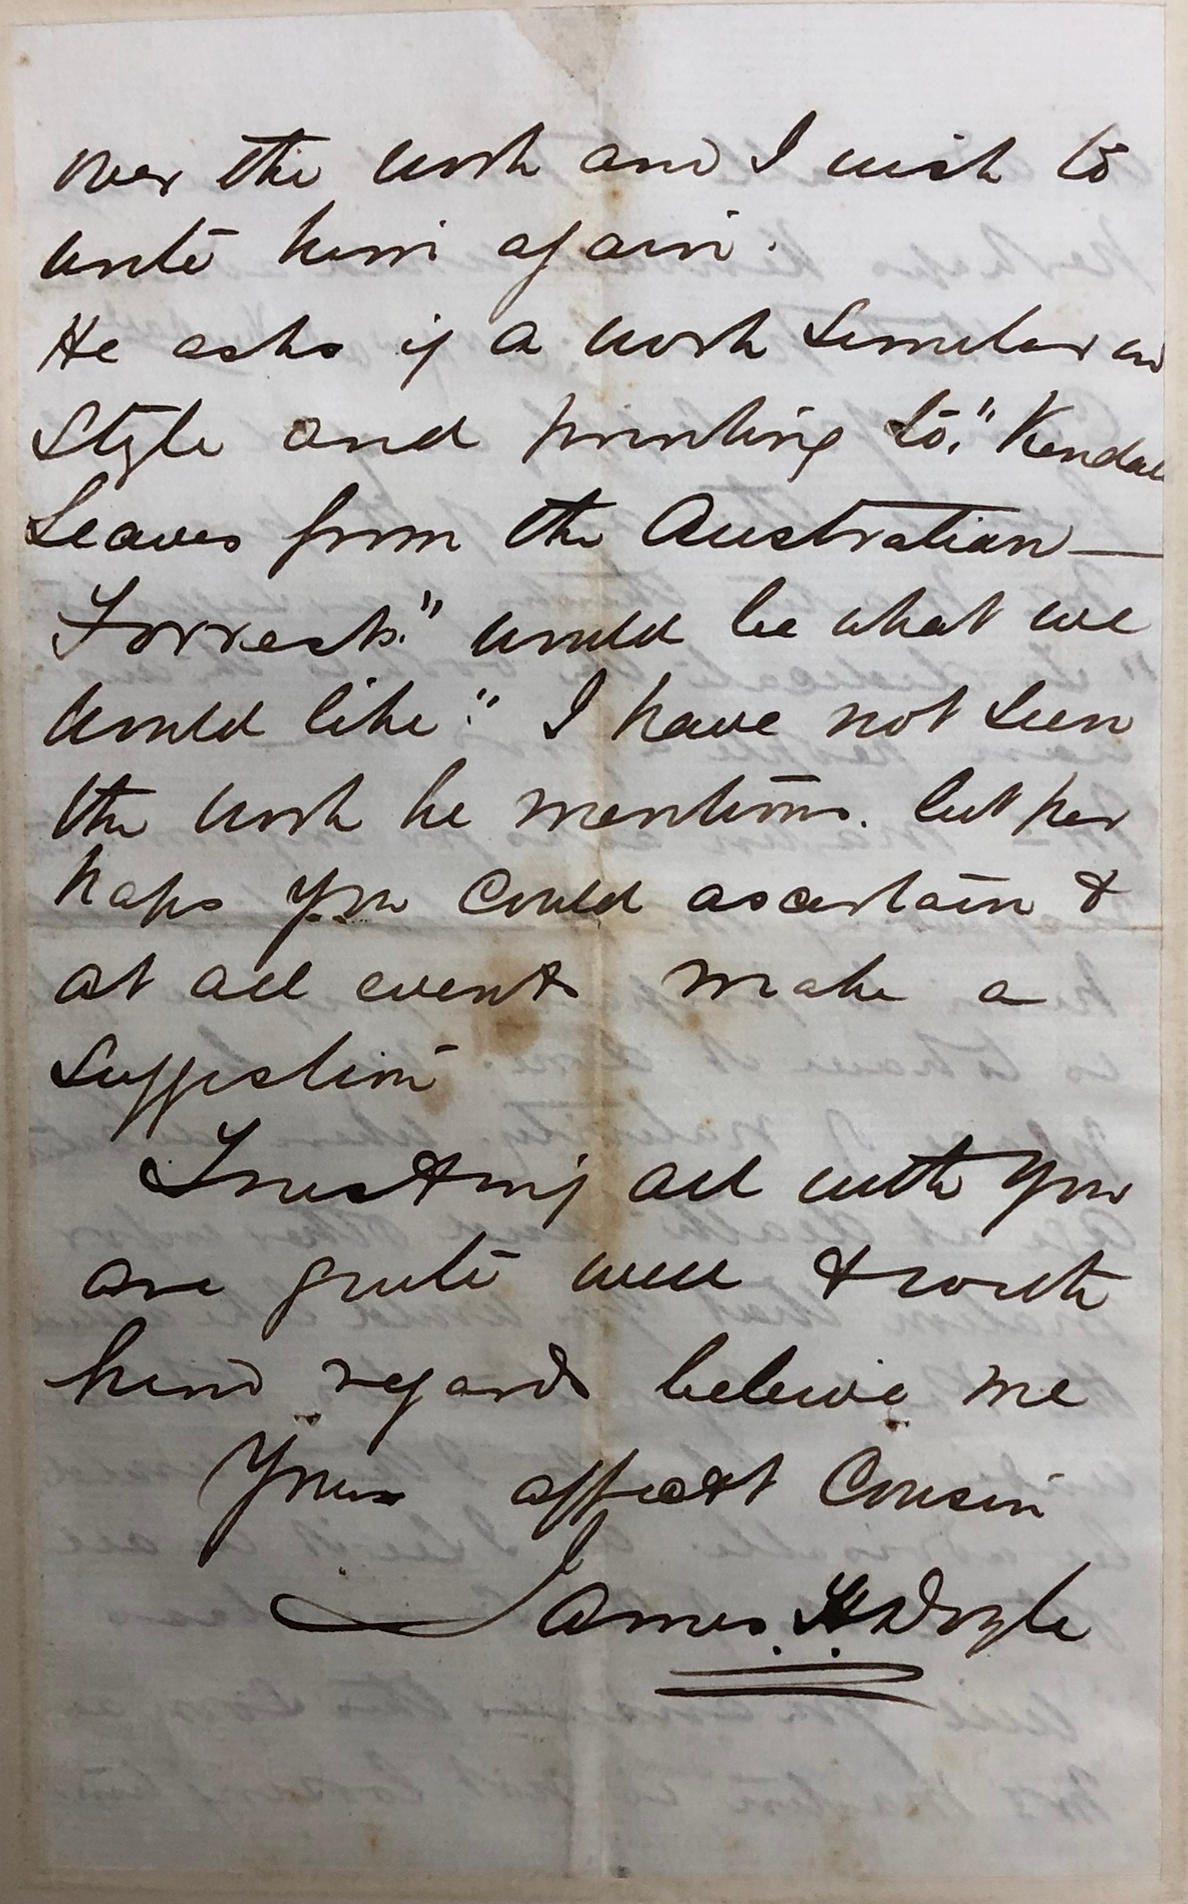 over the work and I wish to
write him again.
He asks if a work similar in
Style and printing to. "Kendall
Leaves from the Australian—
Forrests." would be what we
would like" I have not seen
the work he mentions. but per
haps you could ascertain &
at all events make a
Suggestion
Trusting all with you
are quite well & with
kind regards beleive me
Yours affect Cousin
James H Doyle